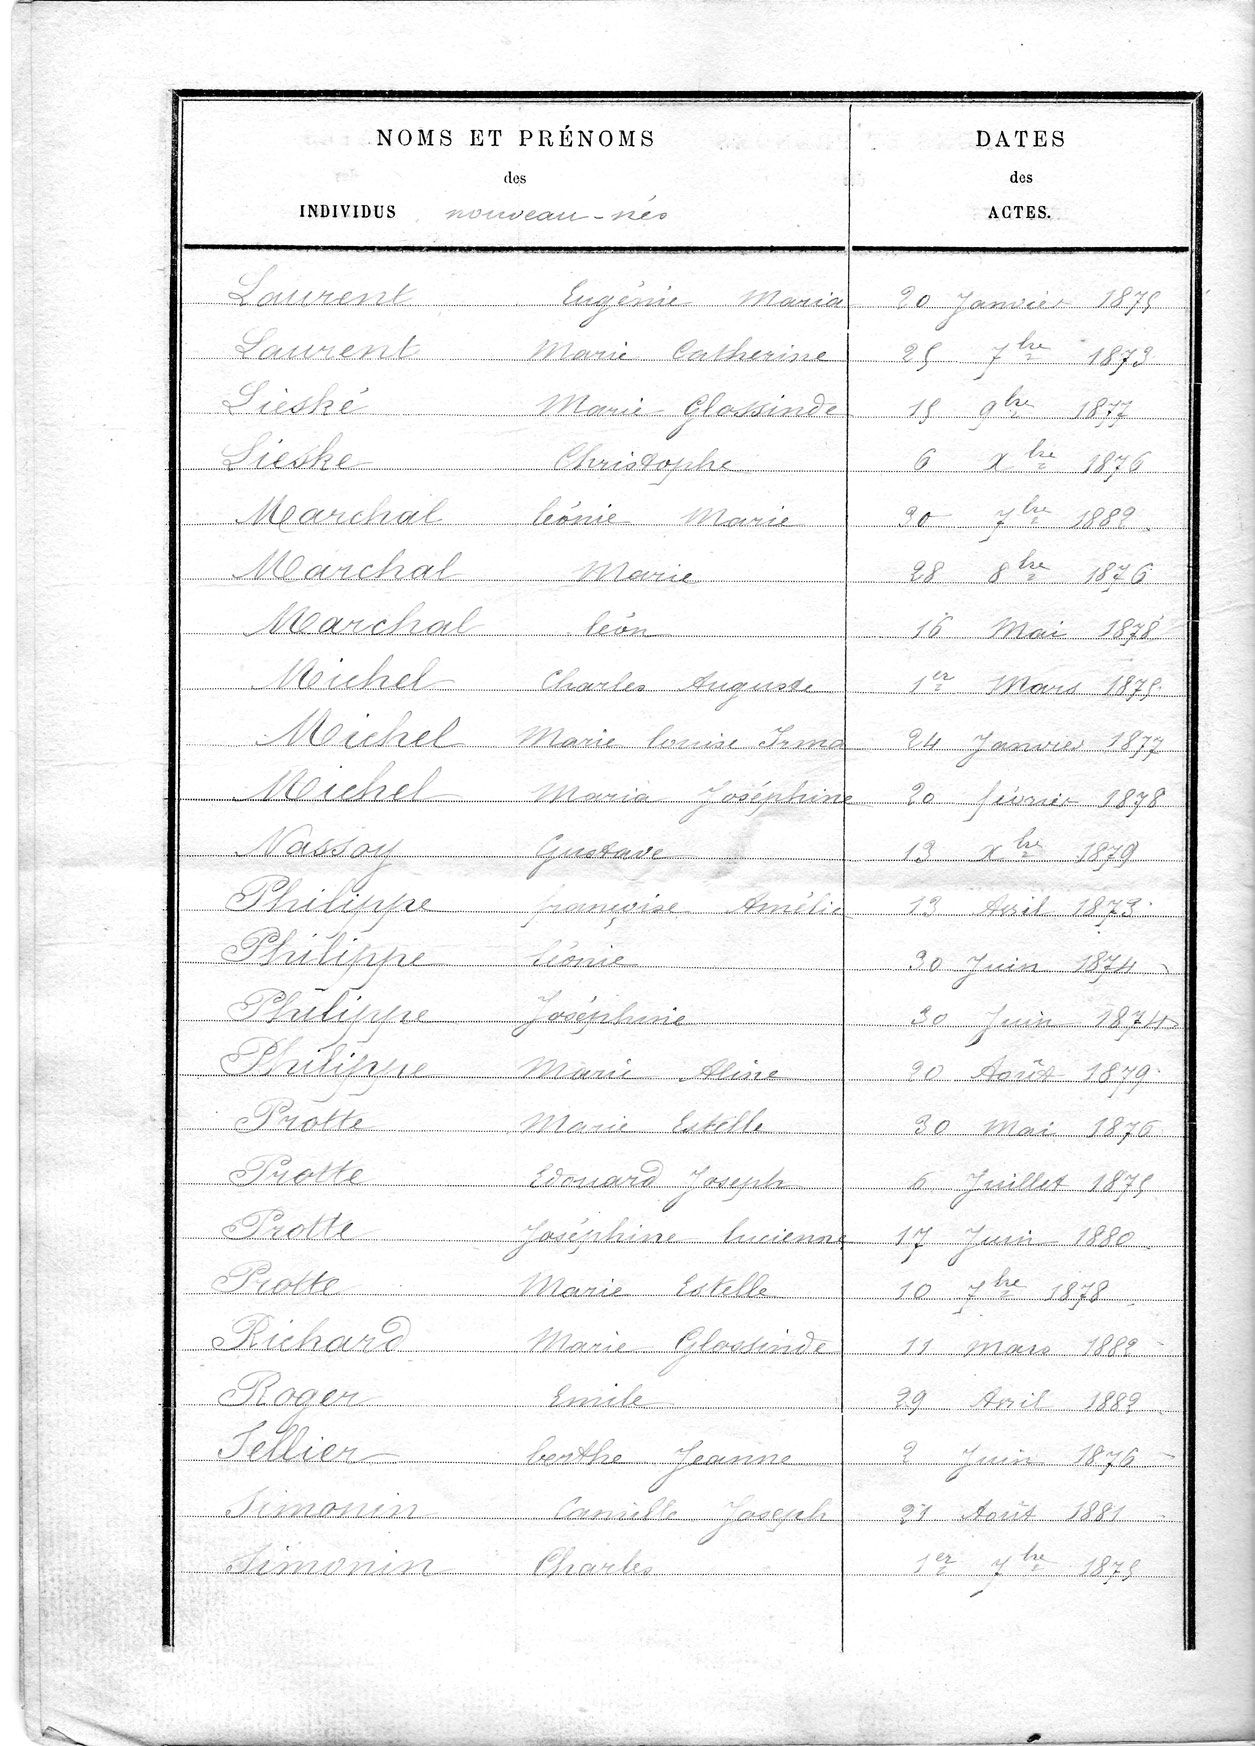 NOMS ET PRÉNOMS
des
INDIVIDUS nouveau-nés
DATES
des
ACTES.
Laurent Eugénie Maria 20 Janvier 1875
Laurent Marie Catherine 25 7bre 1873
Lieské Marie Glossinde 15 9bre 1877
Lieske Christophe 6 Xbre 1876
Marchal Léonie Marie 30 7bre 1882
Marchal Marie 28 8bre 1876
Marchal Léon 16 Mai 1878
Michel Charles Auguste 1er Mars 1875
Michel Marie Louise Irma 24 Janvier 1877
Michel Maria Joséphine 20 février 1878
Nassoy Gustave 13 Xbre 1879
Philippe françoise Amélie 13 Avril 1873
Philippe Léonie 30 Juin 1874
Philippe Joséphine 30 Juin 1874
Philippe Marie Aline 20 Août 1879
Protte Marie Estelle 30 Mai 1876
Protte Edouard Joseph 6 Juillet 1875
Protte Joséphine Lucienne 17 Juin 1880
Protte Marie Estelle 10 7bre 1878
Richard Marie Glossinde 11 mars 1882
Roger Emile 29 Avril 1882
Sellier berthe Jeanne 2 Juin 1876
Simonin Camille Joseph 21 Août 1881
Simonin Charles 1er 7bre 1875